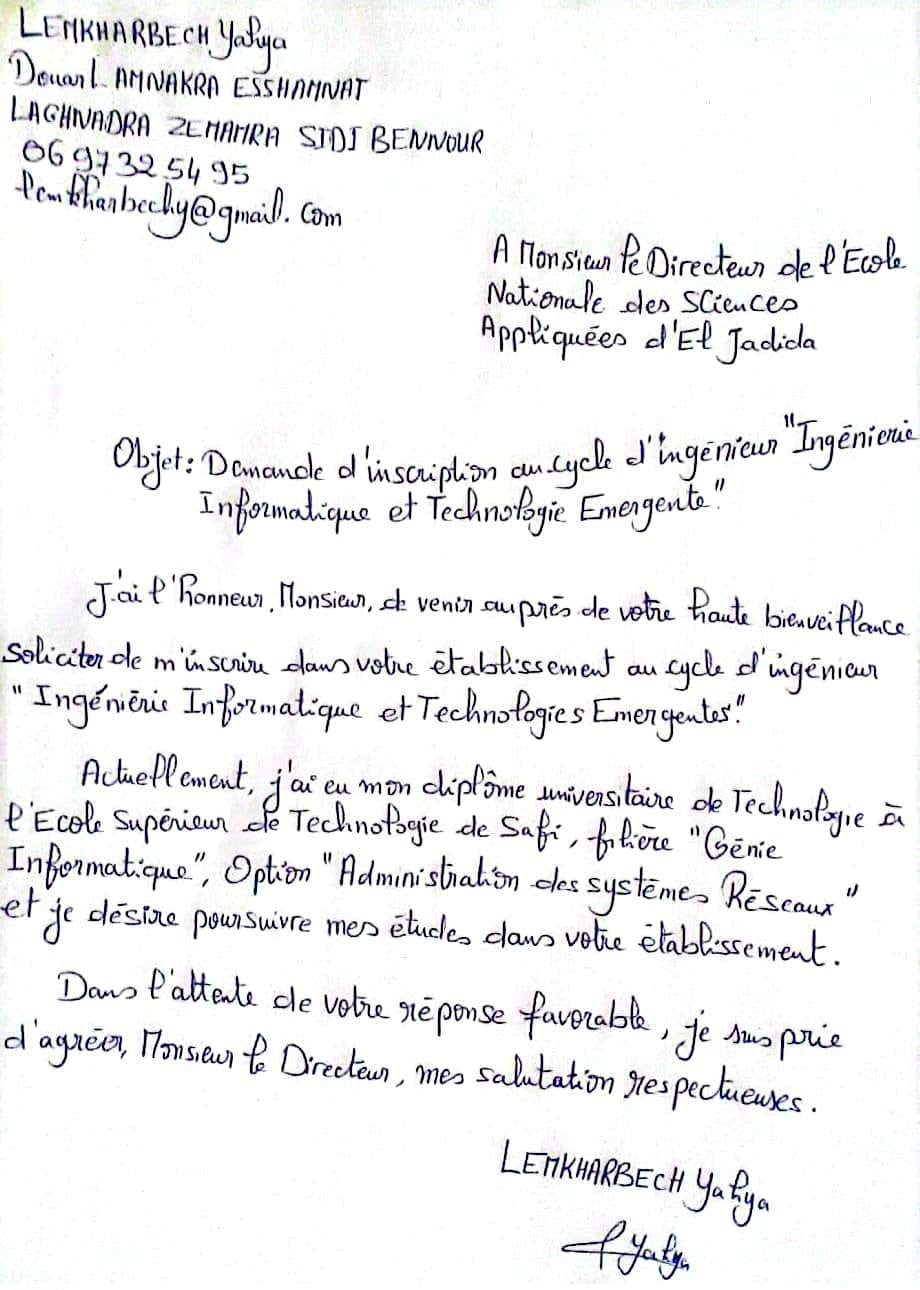 LEMKHARBECH Yahya
Douar L AMNAKRA ESSHAMNAT
LAGHNADRA ZEMAMRA SIDI BENNOUR
06 97 32 54 95
lemkharbechy@gmail.com
A Monsieur le Directeur de l'Ecole
Nationale des Sciences
Appliquées d'El Jadida
Objet: Demande d'inscription au cycle d'ingénieur "Ingénierie
Informatique et Technologie Emergente"
J'ai l'honneur, Monsieur, de venir auprès de votre haute bienveillance
soliciter de m'inscrire dans votre établissement au cycle d'ingénieur
"Ingéniérie Informatique et Technologies Emergentes".
Actuellement, j'ai eu mon diplôme universitaire de Technologie à
l'Ecole Supérieur de Technologie de Safi, filière "Génie
Informatique", Option "Administration des systèmes Réseaux"
et je désire poursuivre mes études dans votre établissement.
Dans l'attente de votre réponse favorable, je suis prie
d'agréer, Monsieur le Directeur, mes salutation respectueuses.
LEMKHARBECH Yahya
Yahya